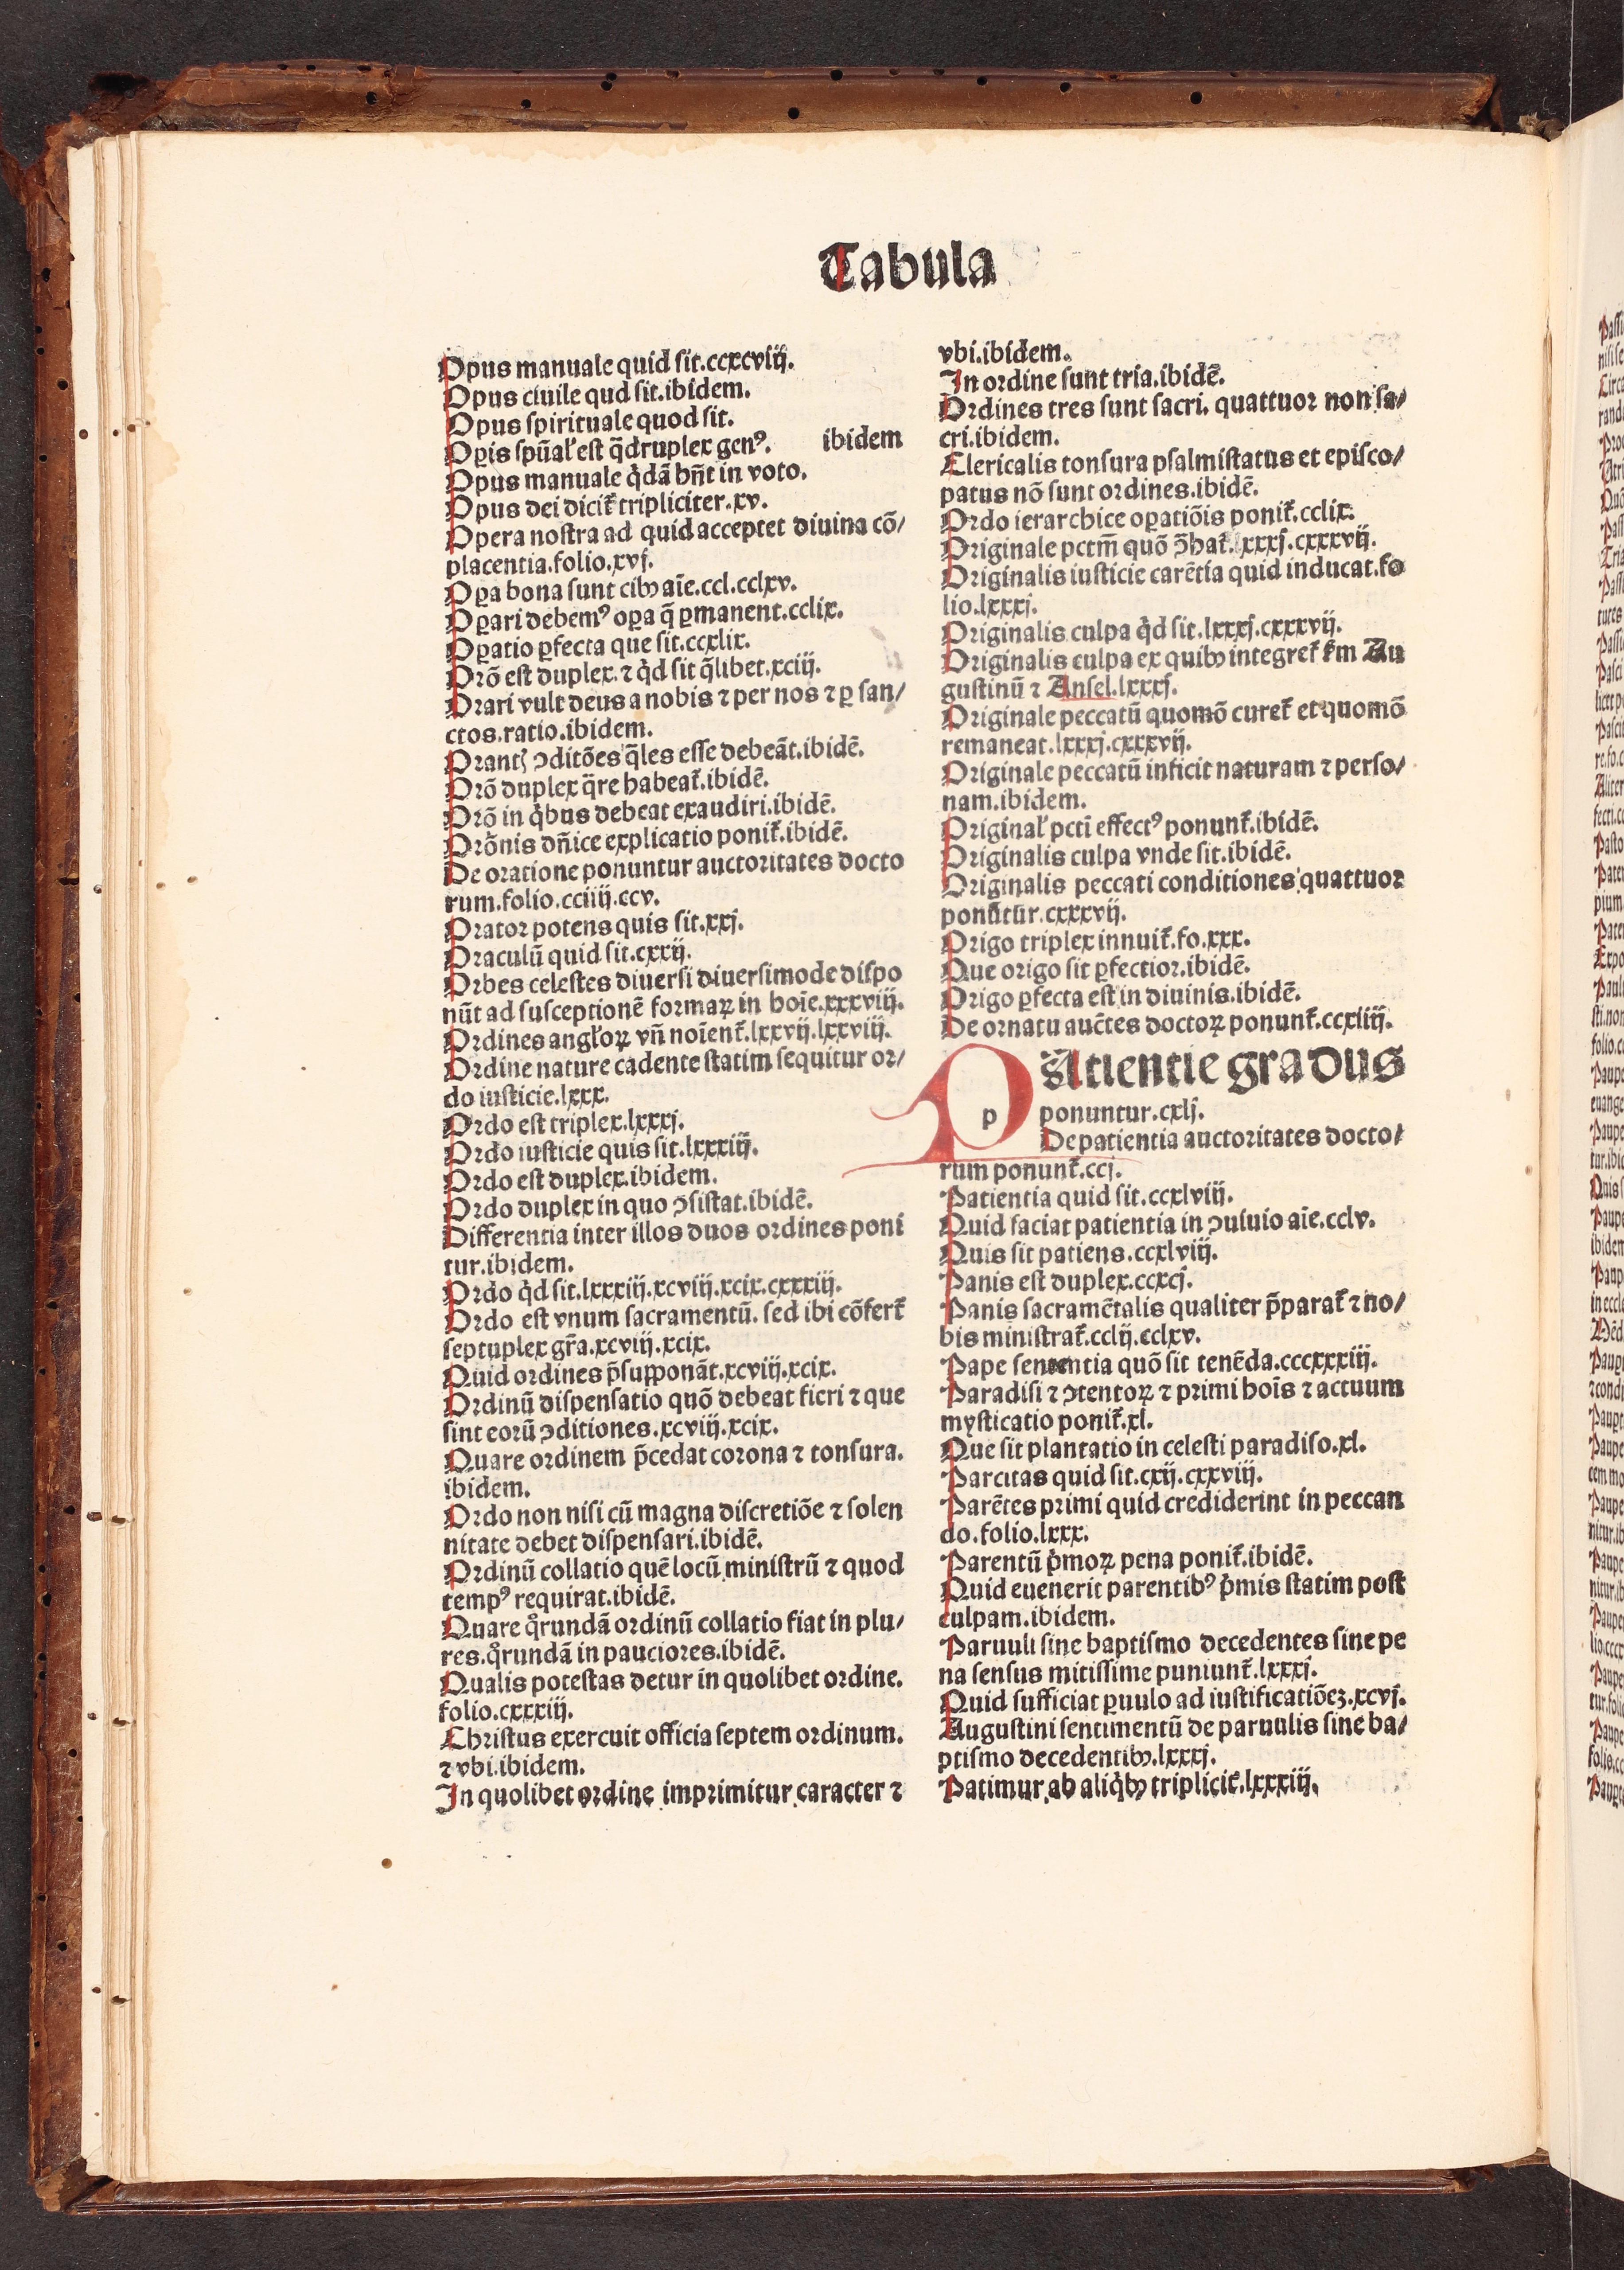 Tabula
Opus manuale quid sit.ccxcviij.
Opus ciuile qud sit.ibidem.
Opus spirituale quod sit.
Oꝑis spūal' est q̄druplex genꝰ. ibidem
Opus manuale q̇dā bn̄t in voto.
Opus dei dicit᷑ tripliciter.xv.
Opera nostra ad quid acceptet diuina cō/
placentia.folio.xvj.
Oꝑa bona sunt cibꝰ aīe.ccl.cclxv.
Oꝑari debemꝰ oꝑa q̄ ꝑmanent.cclix.
Oꝑatio ꝑfecta que sit.ccxlix.
Orō est duplex.⁊ q̇d sit q̄libet.xciij.
Orari vult deus a nobis ⁊ per nos ⁊ ꝑ san/
ctos.ratio.ibidem.
Orantꝭ ꝯditōes q̄les esse debeāt.ibidē.
Orō duplex q̄re habeat᷑.ibidē.
Orō in q̇bus debeat exaudiri.ibidē.
Orōnis dn̄ice explicatio ponit᷑.ibidē.
De oratione ponuntur auctoritates docto
rum.folio.cciiij.ccv.
Orator potens quis sit.xxj.
Oraculū quid sit.cxxij.
Orbes celestes diuersi diuersimode dispo
nūt ad susceptionē formaꝝ in hoīe.xxxviij.
Ordines angl'oꝝ vn̄ noīent᷑.lxxvij.lxxviij.
Ordine nature cadente statim sequitur or/
do iusticie.lxxx.
Ordo est triplex.lxxxj.
Ordo iusticie quis sit.lxxxiij.
Ordo est duplex.ibidem.
Ordo duplex in quo ꝯsistat.ibidē.
Differentia inter illos duos ordines poni
tur.ibidem.
Ordo q̇d sit.lxxxiij.xcviij.xcix.cxxxiij.
Ordo est vnum sacramentū. sed ibi cōfert᷑
septuplex gr̄a.xcviij.xcix.
Quid ordines p̄supponāt.xcviij.xcix.
Ordinū dispensatio quō debeat fieri ⁊ que
sint eorū ꝯditiones.xcviij.xcix.
Quare ordinem p̄cedat corona ⁊ tonsura.
ibidem.
Ordo non nisi cū magna discretiōe ⁊ solen
nitate debet dispensari.ibidē.
Ordinū collatio quē locū ministrū ⁊ quod
tempꝰ requirat.ibidē.
Quare q̊rundā ordinū collatio fiat in plu/
res.q̊rundā in pauciores.ibidē.
Qualis potestas detur in quolibet ordine.
folio.cxxxiij.
Christus exercuit officia septem ordinum.
⁊ vbi.ibidem.
In quolibet ordine imprimitur caracter ⁊
vbi.ibidem.
In ordine sunt tria.ibidē.
Ordines tres sunt sacri. quattuor non sa/
cri.ibidem.
Clericalis tonsura psalmistatus et episco/
patus nō sunt ordines.ibidē.
Ordo ierarchice oꝑatiōis ponit᷑.cclix.
Originale pctm̄ quō ꝓbat᷑.lxxxj.cxxxvij.
Originalis iusticie carētia quid inducat.fo
lio.lxxxj.
Originalis culpa q̇d sit.lxxxj.cxxxvij.
Originalis culpa ex quibꝰ integret᷑ ẜm Au
gustinū ⁊ Ansel.lxxxj.
Originale peccatū quomō curet᷑ et quomō
remaneat.lxxxj.cxxxvij.
Originale peccatū inficit naturam ⁊ perso/
nam.ibidem.
Original' pcti effectꝰ ponunt᷑.ibidē.
Originalis culpa vnde sit.ibidē.
Originalis peccati conditiones quattuor
ponūtur.cxxxvij.
Origo triplex innuit᷑.fo.xxx.
Que origo sit ꝑfectior.ibidē.
Origo ꝑfecta est in diuinis.ibidē.
De ornatu auc̄tes doctoꝝ ponunt᷑.ccxliij.
PAtientie gradus
ponuntur.cxlj.
De patientia auctoritates docto/
rum ponunt᷑.ccj.
Patientia quid sit.ccxlviij.
Quid faciat patientia in ꝯuiuio aīe.cclv.
Quis sit patiens.ccxlviij.
Panis est duplex.ccxcj.
Panis sacramētalis qualiter p̄parat᷑ ⁊ no/
bis ministrat᷑.cclij.cclxv.
Pape sententia quō sit tenēda.cccxxxiij.
Paradisi ⁊ ꝯtentoꝝ ⁊ primi hoīs ⁊ actuum
mysticatio ponit᷑.xl.
Que sit plantatio in celesti paradiso.xl.
Parcitas quid sit.cxij.cxxviij.
Parētes primi quid crediderint in peccan
do.folio.lxxx.
Parentū ṗmoꝝ pena ponit᷑.ibidē.
Quid euenerit parentibꝰ ṗmis statim post
culpam.ibidem.
Paruuli sine baptismo decedentes sine pe
na sensus mitissime puniunt᷑.lxxxj.
Quid sufficiat ꝑuulo ad iustificatiōeꝫ.xcvj.
Augustini sentimentū de paruulis sine ba/
ptismo decedentibꝰ.lxxxj.
Patimur ab aliq̇bꝰ triplicit᷑.lxxxiij.